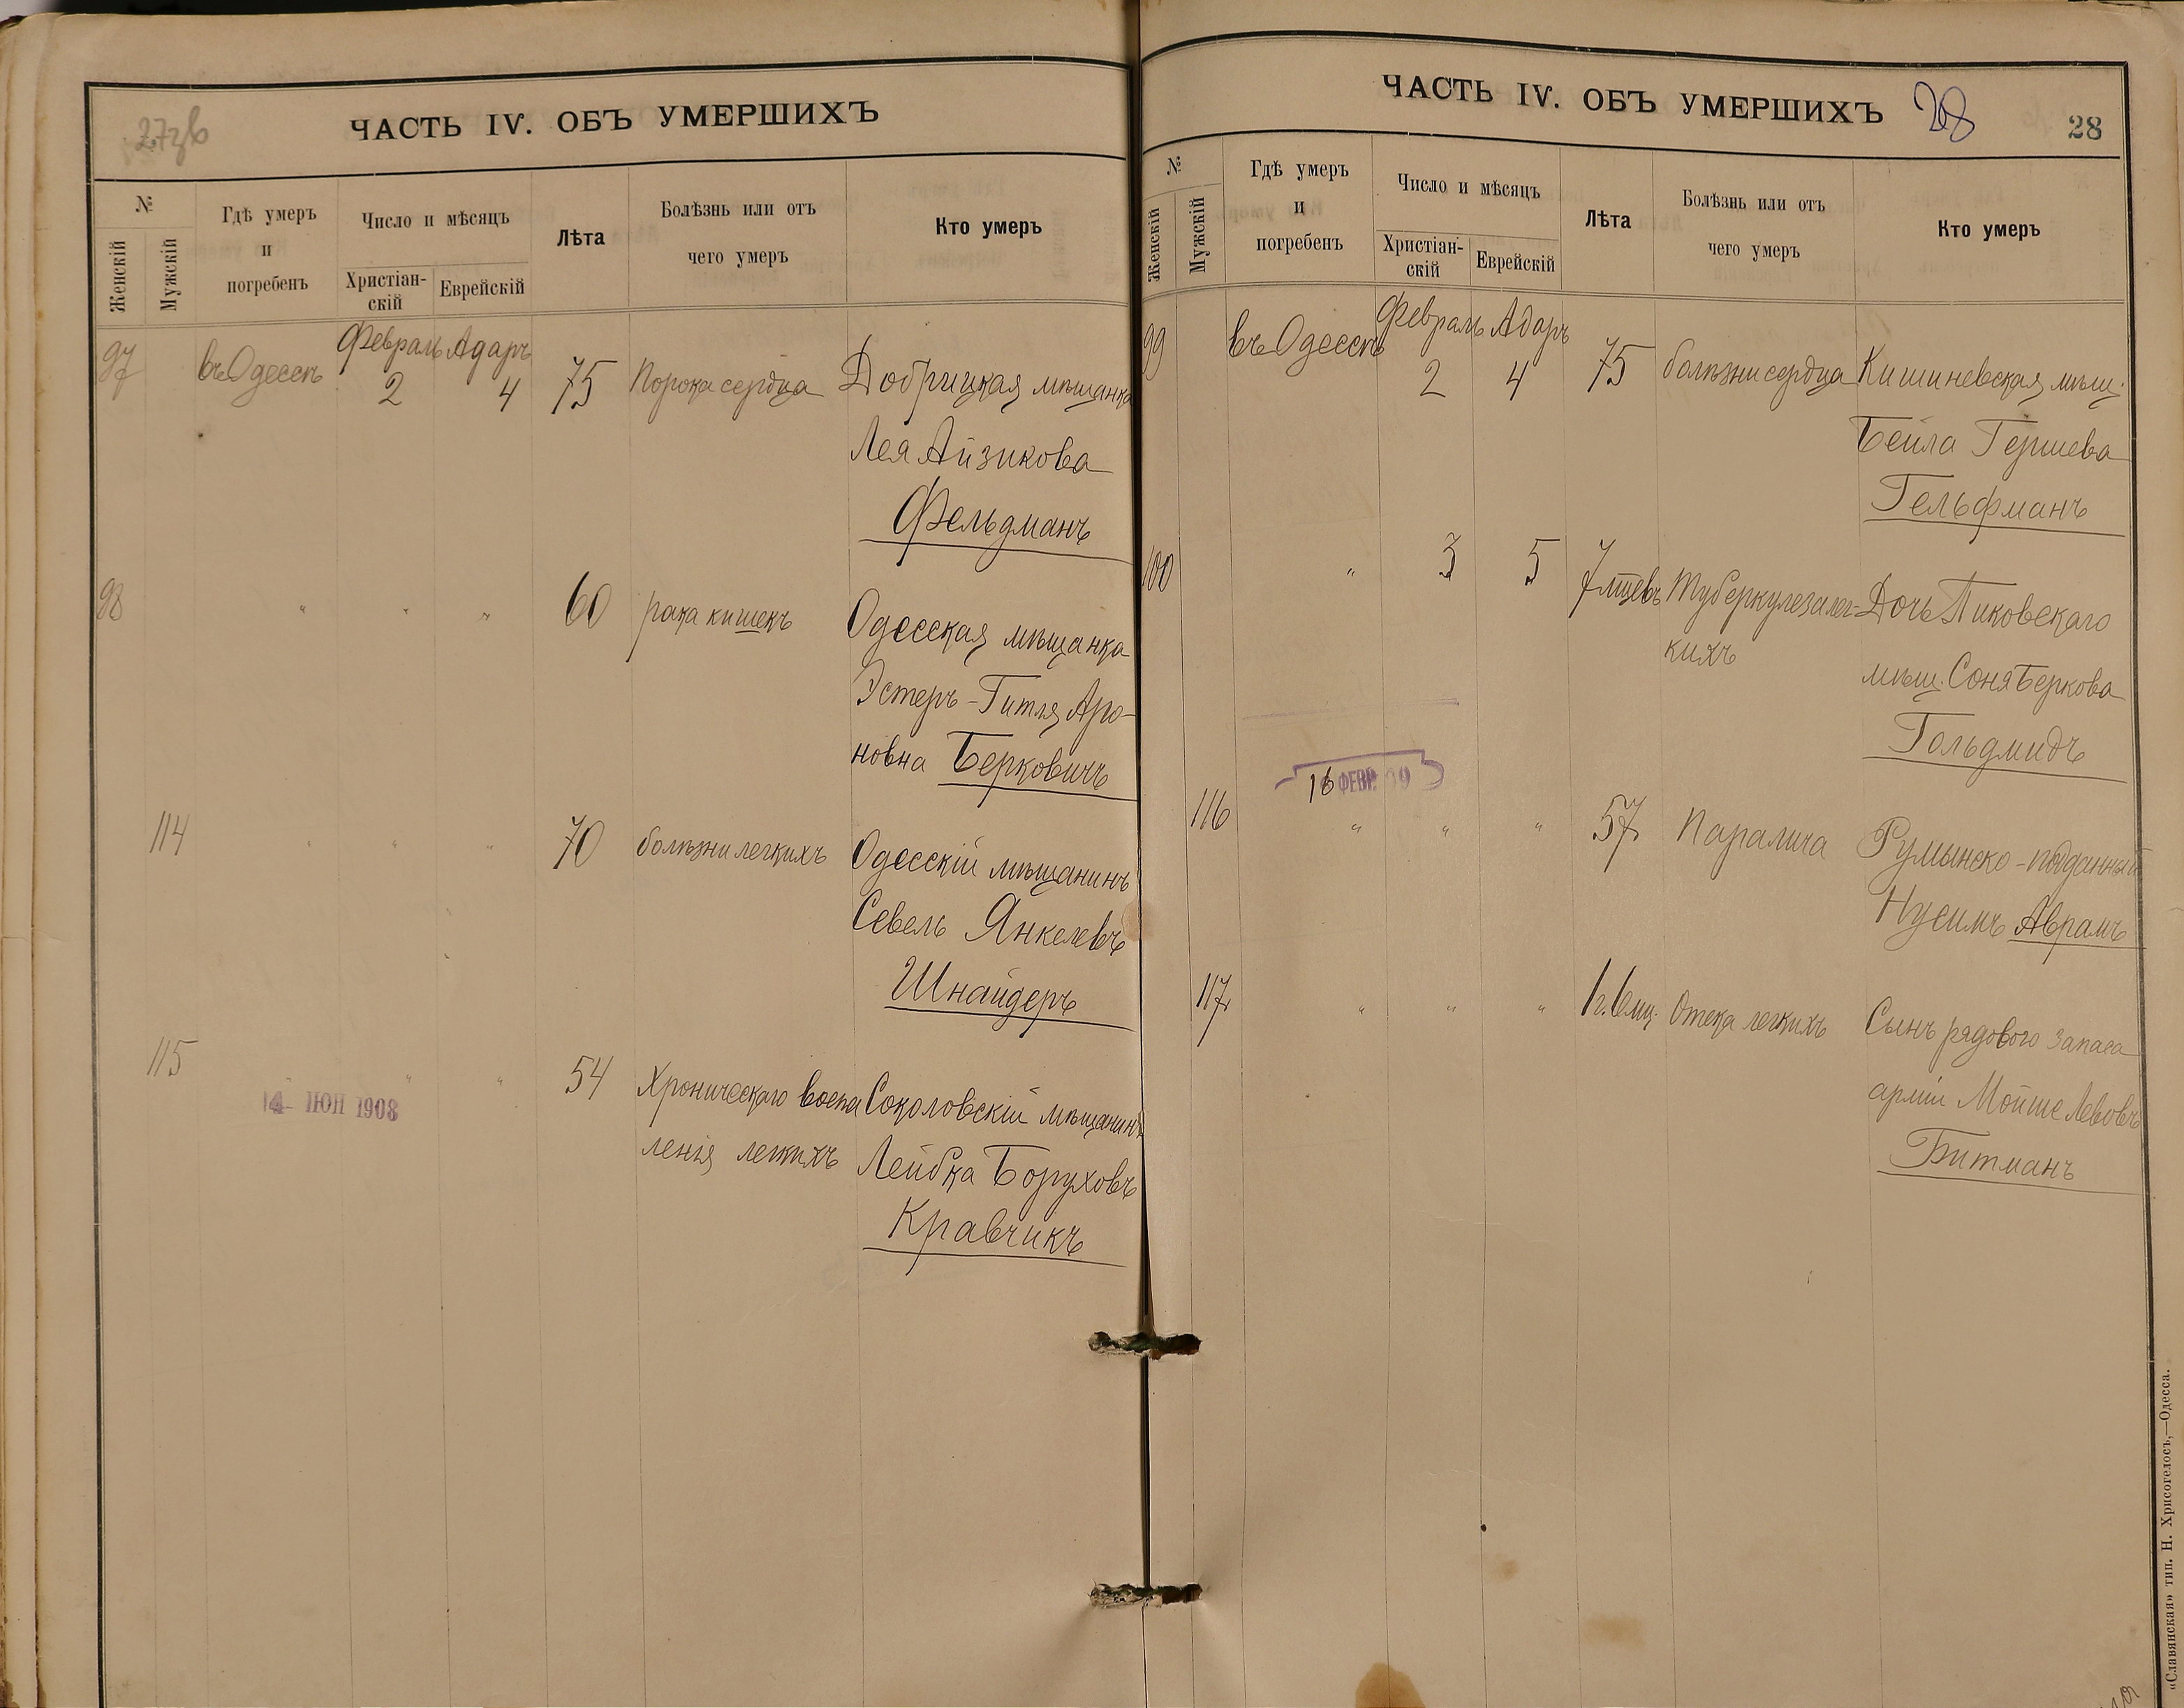 27 зв
ЧАСТЬ IV. ОБЪ УМЕРШИХЪ
№
Женскій
Мужскій
Гдѣ умеръ
и
погребенъ
Число и мѣсяцъ
Христіан-
скій
Еврейскій
Лѣта
Болѣзнь или отъ
чего умеръ
Кто умеръ
97 въ Одессѣ Февраль 2 Адаръ 4 75 Порока сердца Добрицкая мѣщанка
Лея Айзикова
Фельдманъ
98 " " " 60 рака кишекъ Одесская мѣщанка
Эстеръ-Гитля Аро-
новна Берковичъ
114 " " " 70 болѣзни легкихъ Одесскій мѣщанинъ
Севель Янкелевъ
Шнайдеръ
115 " " " 54 Хроническаго воспа Соколовскій мѣщанинъ
14 ІЮН 1908
ленія легкихъ Лейбка Боруховъ
Кравчикъ
ЧАСТЬ IV. ОБЪ УМЕРШИХЪ 28
28
№
Женскій
Мужскій
Гдѣ умеръ
и
погребенъ
Число и мѣсяцъ
Христіан-
скій
Еврейскій
Лѣта
Болѣзнь или отъ
чего умеръ
Кто умеръ
99 въ Одессѣ Февраль 2 Адаръ 4 75 болѣзни сердца Кишиневская мѣщ.
Бейла Гершева
Гельфманъ
100 " 3 5 7 мцевъ Туберкулеза лег- Дочь Пиковскаго
кихъ мѣщ. Соня Беркова
Гольдмидъ
16 ФЕВР. 09
116 " " " 57 Паралича Румынско-подданный
Нусимъ Аврамъ
117 " " " 1 г. 6 мц. Отека легкихъ Сынъ рядового запаса
арміи Мойше Левовъ
Битманъ
«Славянская» тип. Н. Хрисогелосъ,—Одесса.